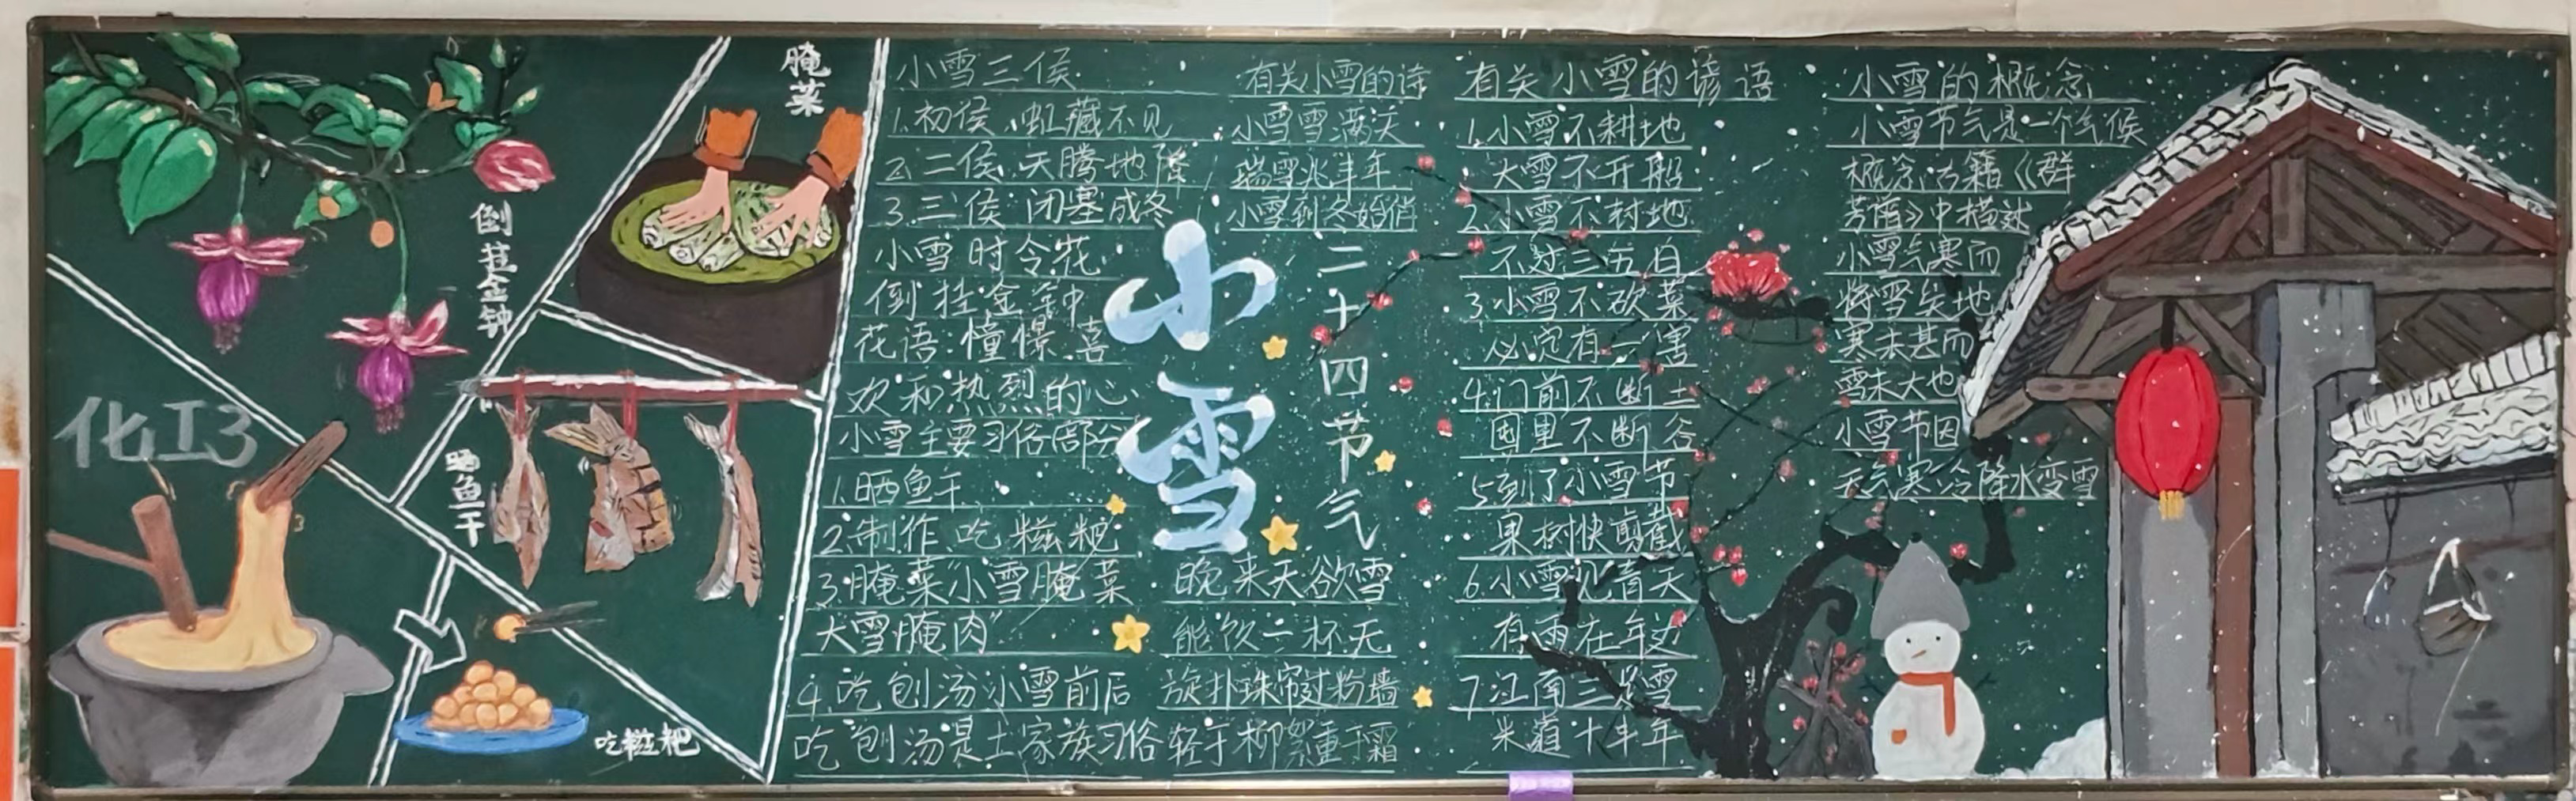 腌菜
倒挂金钟
化工3
晒鱼干
吃糍粑
小雪三侯
1.初侯,虹藏不见
2.二侯,天腾地降
3.三侯,闭塞成冬
小雪时令花
倒挂金钟
花语:憧憬、喜
欢和热烈的心
小雪主要习俗(部分
1.晒鱼干
2.制作、吃糍粑
3.腌菜“小雪腌菜
大雪腌肉”
4.吃刨汤小雪前后
吃刨汤是土家族习俗
有关小雪的诗
小雪雪满天
瑞雪兆丰年
小雪到冬始俏
小雪
二十四节气
晚来天欲雪
能饮一杯无
旋扑珠帘过粉墙
轻于柳絮重于霜
有关小雪的谚语
1.小雪不耕地
大雪不开船
2.小雪不封地
不过三五日
3.小雪不砍菜
必定有一害
4.门前不断土
囤里不断谷
5.到了小雪节
果树快剪截
6.小雪见青天
有雨在年边
7.江南三 雪
米道十丰年
小雪的概念
小雪节气是一个气候
概念,古籍《群
芳谱》中描述
小雪气寒而
将雪矣,地
寒未甚而
雪未大也
小雪节因
天气寒冷降水变雪